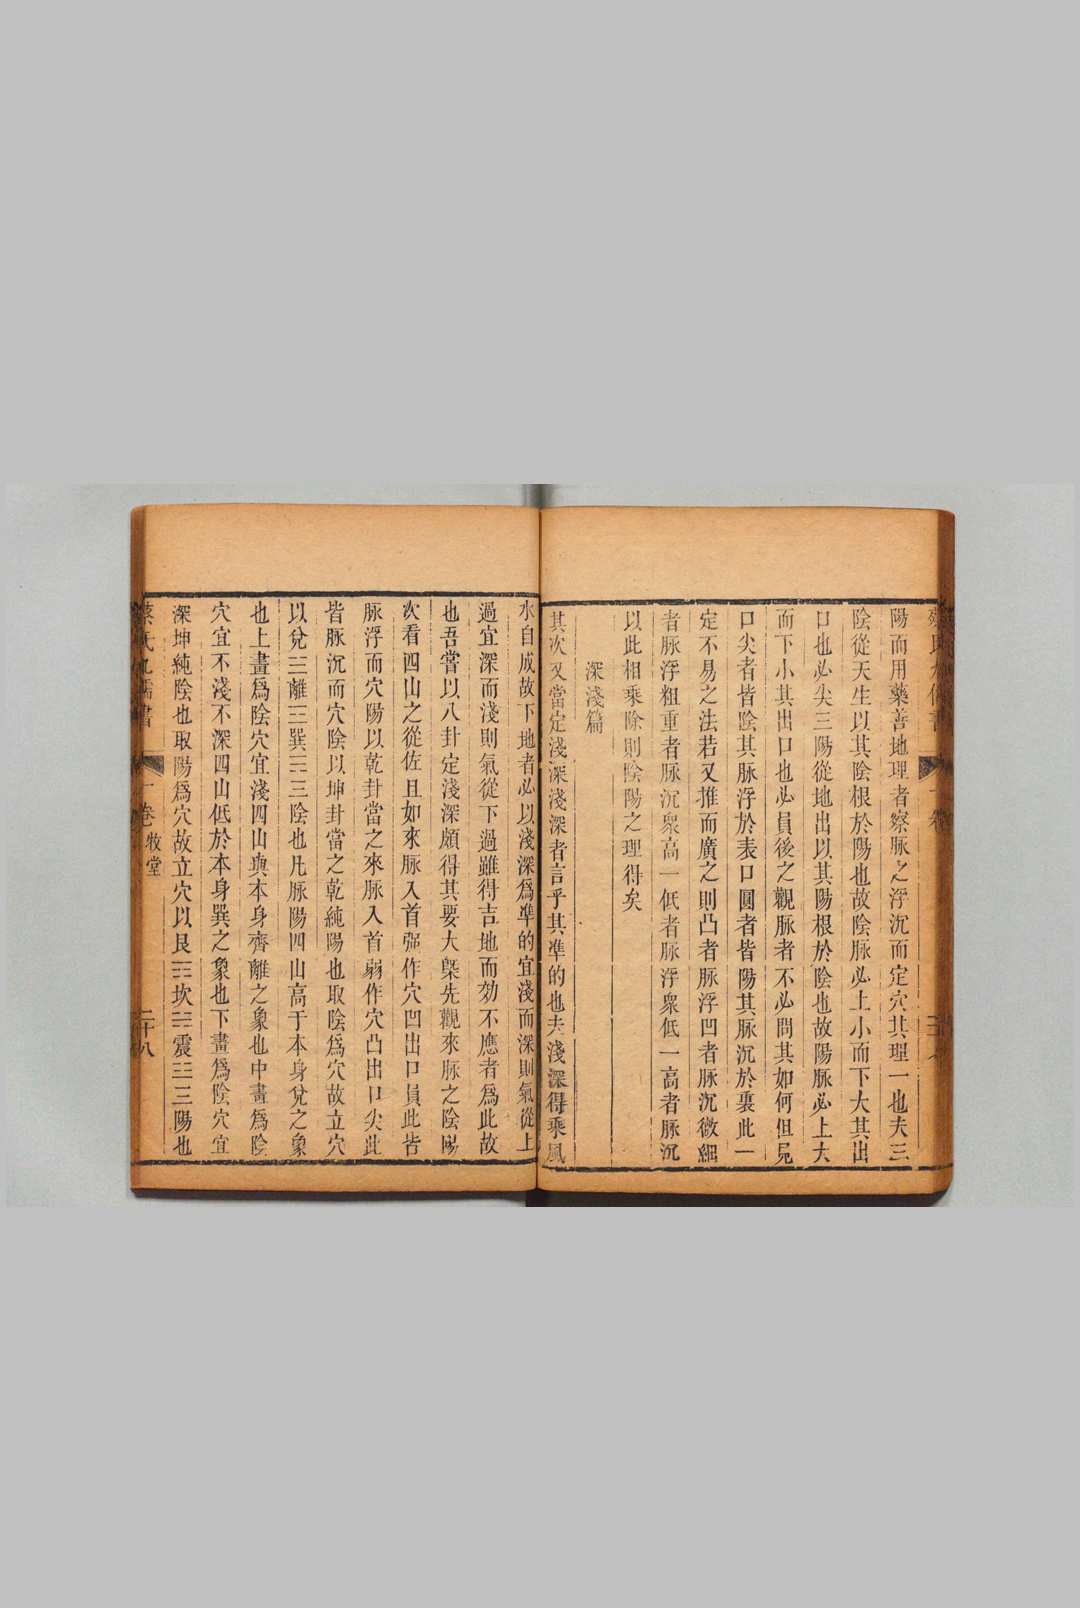 陽而用藥善地理者察脉之浮沉而定穴其理一也夫三
陰從天生以其陰根於陽也故陰脉必上小而下大其出
口也必尖三陽從地出以其陽根於陰也故陽脉必上大
而下小其出口也必員後之觀脉者不必問其如何但見
口尖者皆陰其脉浮於表口圓者皆陽其脉沉於裏此一
定不易之法若又推而廣之則凸者脉浮凹者脉沉微細
者脉浮粗重者脉沉衆高一低者脉浮衆低一高者脉沉
以此相乘除則陰陽之理得矣
深淺篇
其次又當定淺深淺深者言乎其準的也夫淺深得乘風
水自成故下地者必以淺深爲準的宜淺而深則氣從上
過宜深而淺則氣從下過雖得吉地而効不應者爲此故
也吾嘗以八卦定淺深頗得其要大槩先觀來脉之陰陽
次看四山之從佐且如來脉入首強作穴凹出口員此皆
脉浮而穴陽以乾卦當之來脉入首弱作穴凸出口尖此
皆脉沉而穴陰以坤卦當之乾純陽也取陰爲穴故立穴
以兌☱離☲巽☴三陰也凡脉陽四山高于本身兌之象
也上畫爲陰穴宜淺四山與本身齊離之象也中畫爲陰
穴宜不淺不深四山低於本身巽之象也下畫爲陰穴宜
深坤純陰也取陽爲穴故立穴以艮☶坎☵震☳三陽也
蔡氏九儒書 一卷 牧堂 二十八